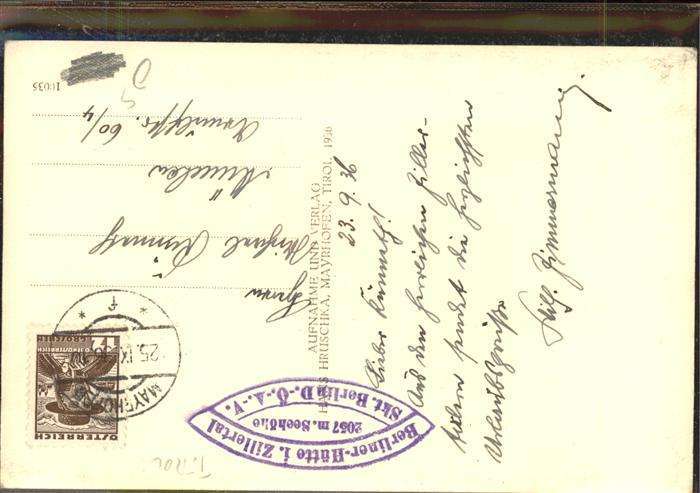 23. 9. 36
Lieber Kümmerth!
Aus den herrlichen Ziller-
talern sendet die herzlichsten
Urlaubsgrüße
Zimmermann
AUFNAHME UND VERLAG
HANS HRUSCHKA, MAYRHOFEN, TIROL 1936
Berliner-Hütte i. Zillertal
2057 m. Seehöhe
Skt. Berlin D. Ö. A. V.
12
GROSCHEN
ÖSTERREICH
MAYRHOFEN
25. IX. 36
* f *
Herrn
München
60/4
10035
TIROL